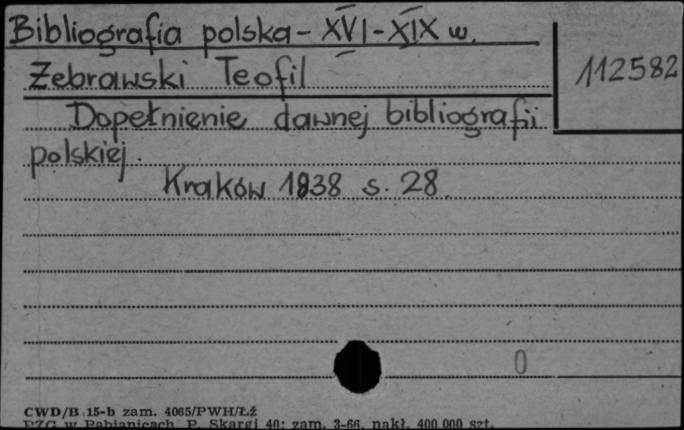 Bibliografia polska - XVI - XIX w.
Żebrawski Teofil
112582
Dopełnienie dawnej bibliografii
polskiej.
Kraków 1838 s. 28.
0
CWD/B 15-b zam. 4065/PWH/Łż
PZG w Pabianicach, P. Skargi 40; zam. 3-66, nakł. 400 000 szt.